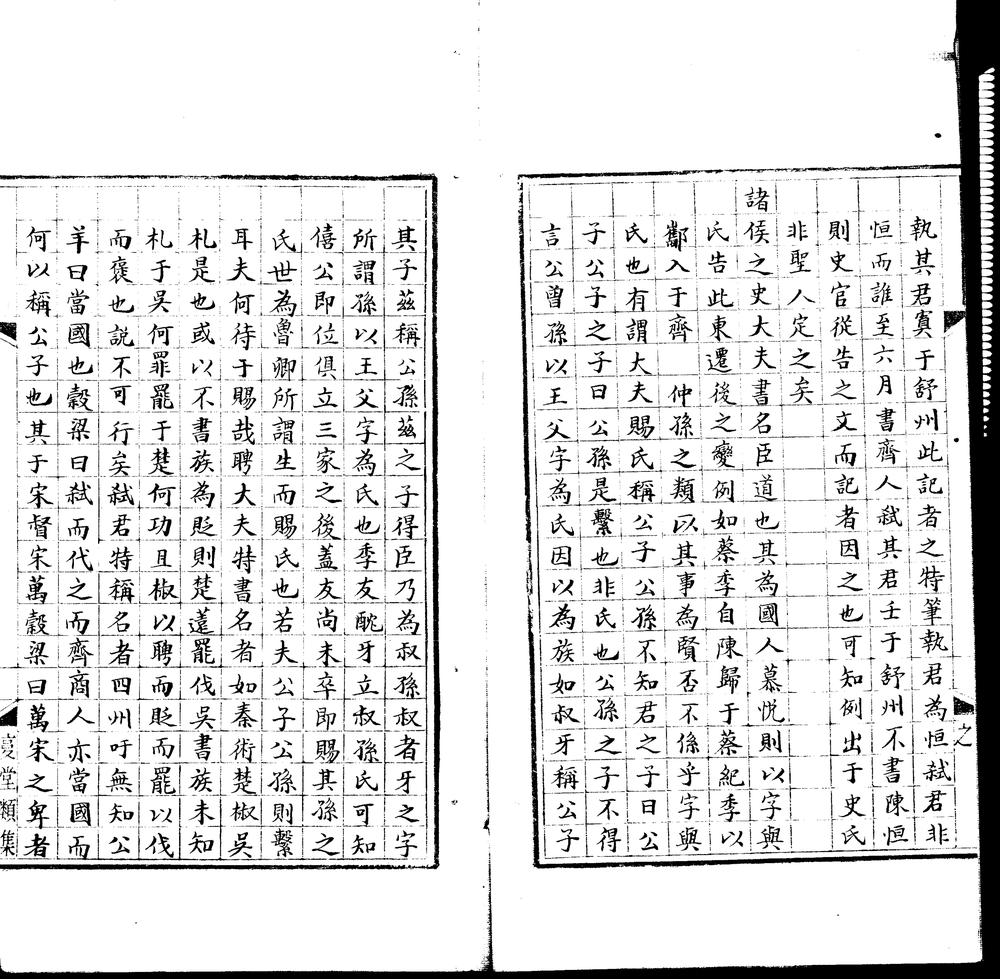 執其君寘于舒州此記者之特筆執君為恒弑君非
恒而誰至六月書齊人弑其君壬于舒州不書陳恒
則史官從告之文而記者因之也可知例出于史氏
非聖人定之矣
諸侯之史大夫書名臣道也其為國人慕悦則以字與
氏告此東遷後之變例如蔡季自陳歸于蔡紀季以
酅入于齊　仲孫之類以其事為賢否不係乎字與
氏也有謂大夫賜氏稱公子公孫不知君之子曰公
子公子之子曰公孫是繫也非氏也公孫之子不得
言公曾孫以王父字為氏因以為族如叔牙稱公子
其子茲稱公孫茲之子得臣乃為叔孫叔者牙之字
所謂孫以王父字為氏也季友酖牙立叔孫氏可知
僖公即位俱立三家之後蓋友尚未卒即賜其孫之
氏世為魯卿所謂生而賜氏也若夫公子公孫則繫
耳夫何待于賜哉聘大夫特書名者如秦術楚椒吳
札是也或以不書族為貶則楚薳罷伐吳書族未知
札于吳何罪罷于楚何功且椒以聘而貶而罷以伐
而褒也説不可行矣弑君特稱名者四州吁無知公
羊曰當國也穀梁曰弑而代之而齊商人亦當國而
何以稱公子也其于宋督宋萬穀梁曰萬宋之卑者
堂類集